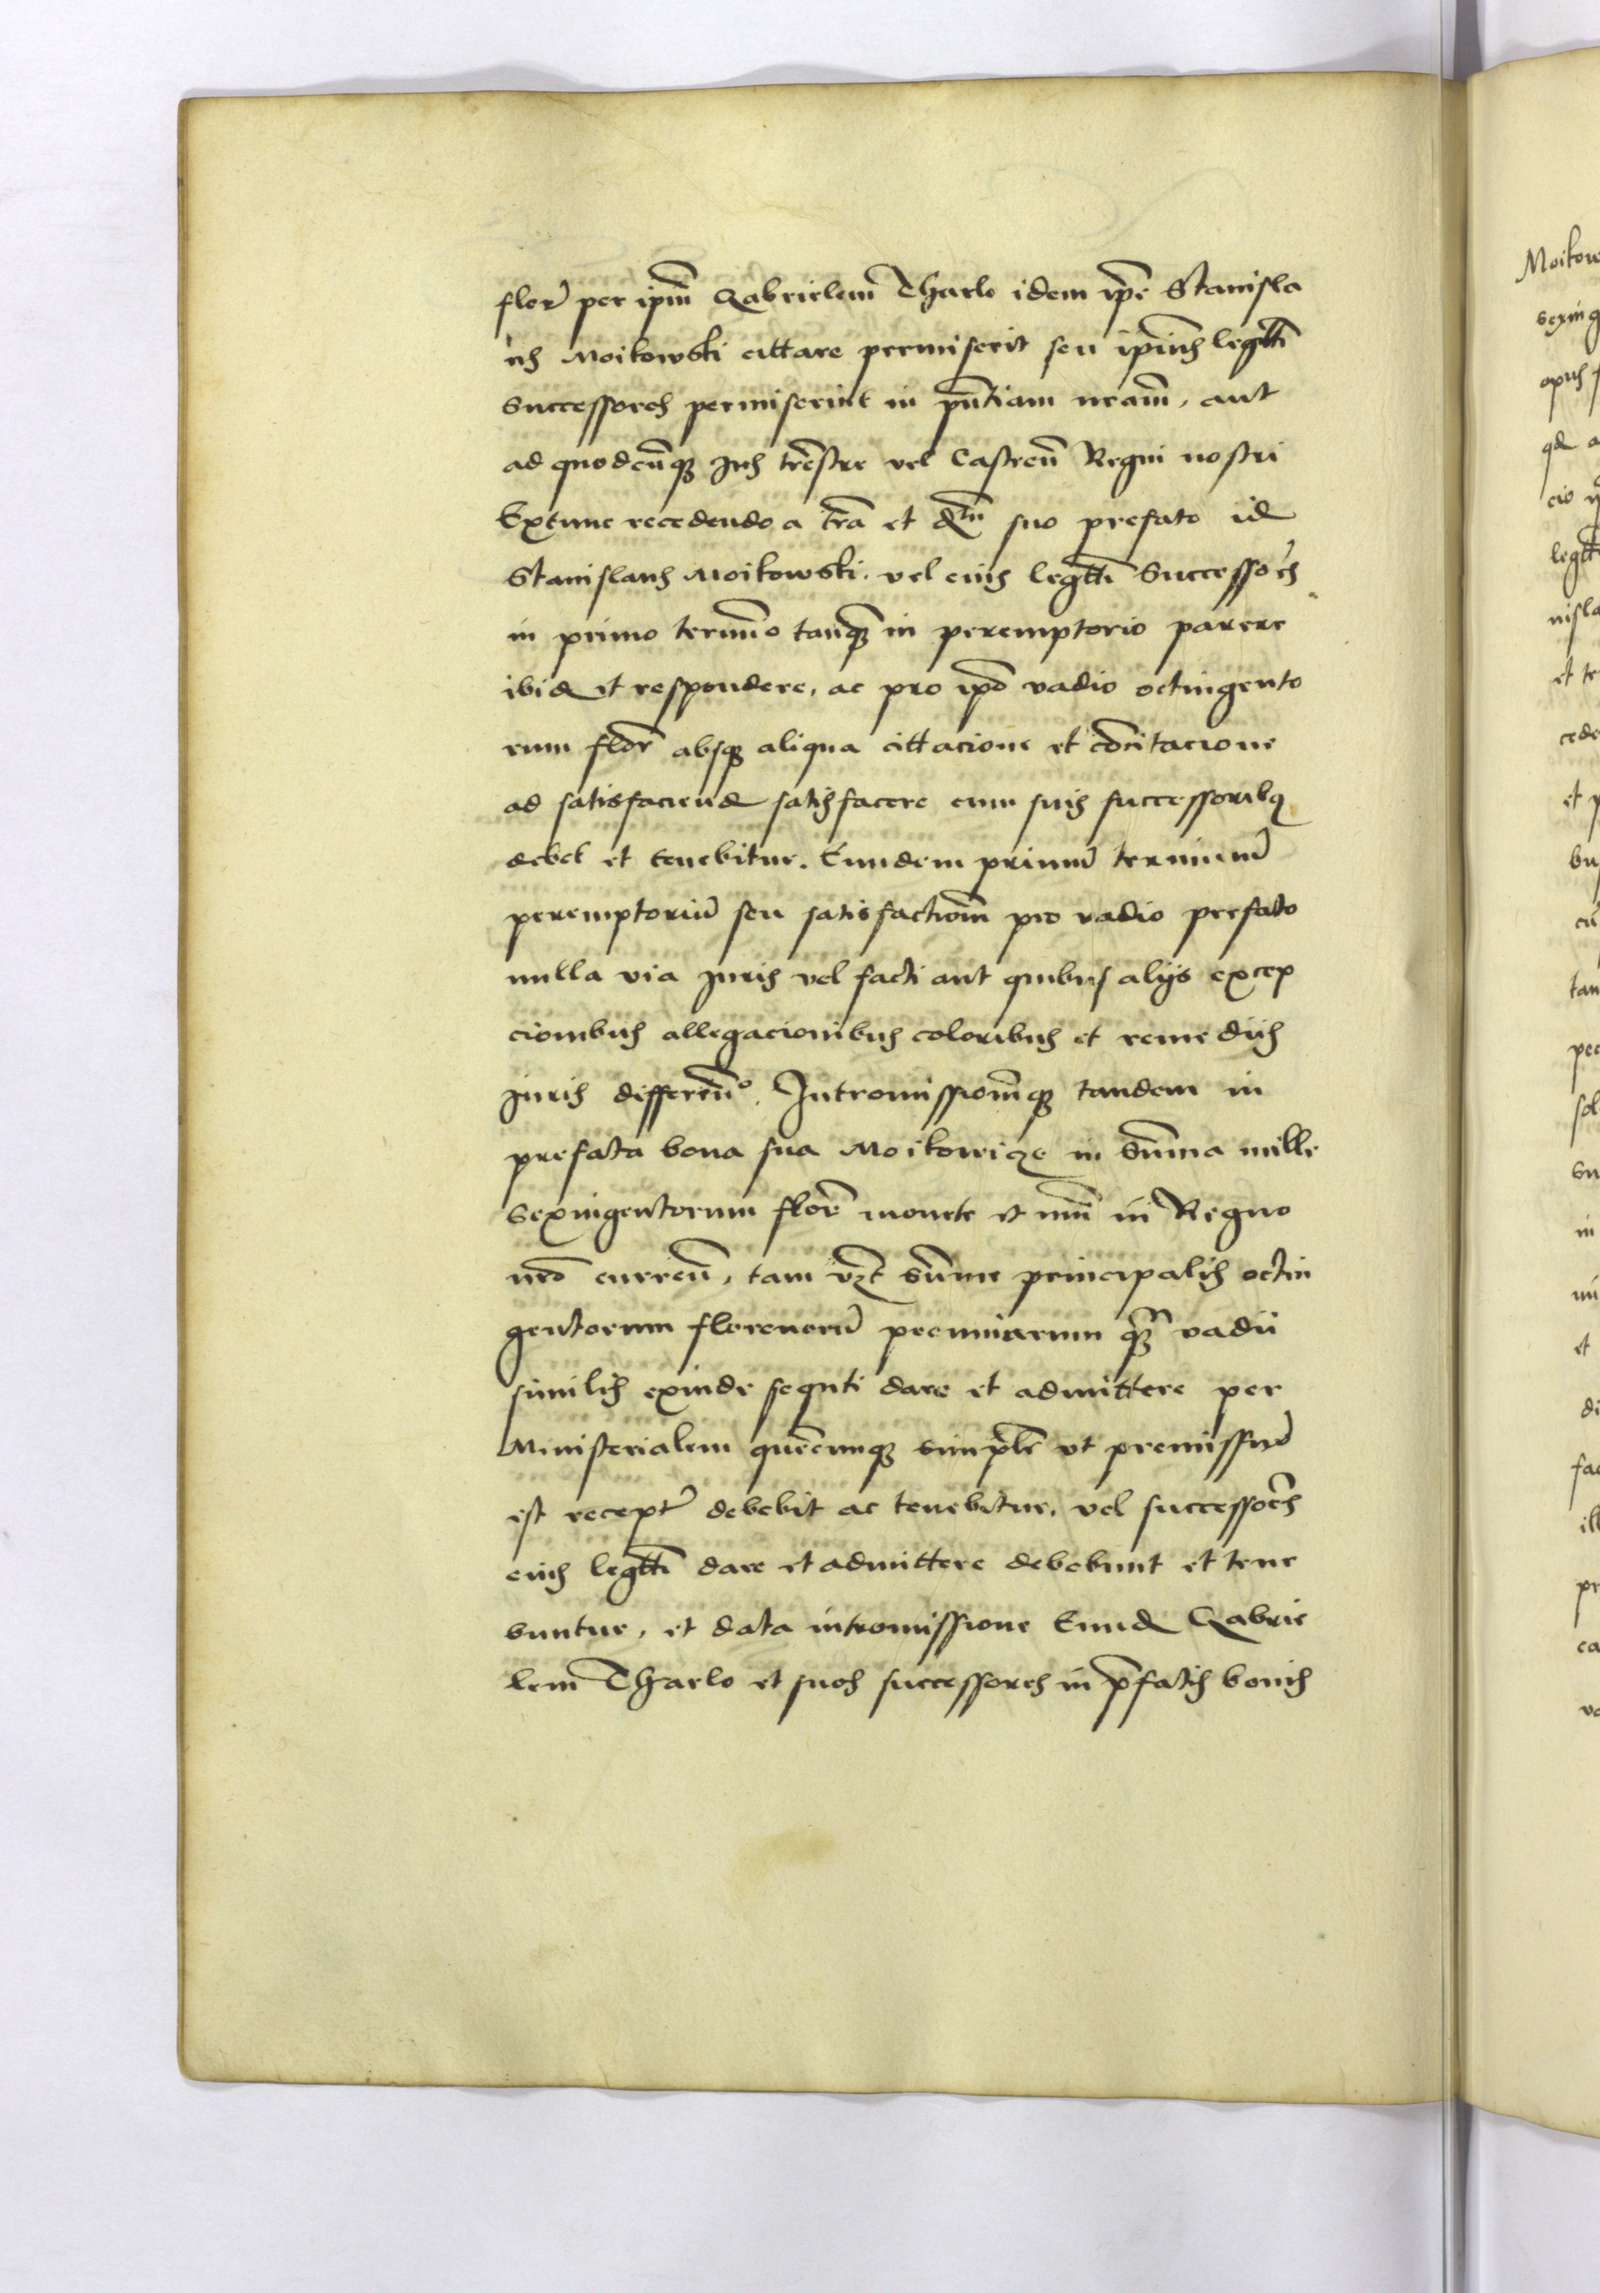 florẽ per ipm̃ Gabrielem̃ Tharlo idem ip̃e Stanisla
us Moikowski cittare permiserit seu ip̃ius legtt̃i
Successores permiserint in pñtiam nram̃, aut
ad quodcũqꝫ Jus trẽstre vel Castreñ Regni nostri
Extunc recedendo a tr̃a et d suo prefato id
Stanislaus Moikowski. vel eius legtt̃i Successor̃es
in primo termĩo tanqꝫ in peremptorio parere
ibid et respondere, ac pro ip̃o vadio octingento
rum flor̃ absqꝫ aliqua cittacione et cõcitacione
ad satisfaciend satisfacere cum suis successoribꝫ
debet et tenebitur. Eundem primũ terminũ
peremptoriũ seu satisfactiom̃ pro vadio prefato
nulla via Juris vel facti aut quibus alijs excep
cionibus allegacionibus coloribus et remedijs
juris differeñº. Intromissiom̃qꝫ tandem in
prefata bona sua Moikowicze in Sũma mille
Sexingentorum flor̃ monete et nũi in Regno
nr̃o curreñ, tam vꝫt Sũme principalis octin
gentorum florenorũ pecuniarum qꝫ̃ vadii
similis exinde sequti dare et admittere per
Ministerialem quẽcunqꝫ simpl̃r ut premissũ
est recept̃ debebit ac tenebitur, vel successor̃es
eius legtt̃i dare et admittere debebunt et tene
buntur, et data intromissione Eund Gabrie
lem̃ Tharlo et suos successores in p̃fatis bonis